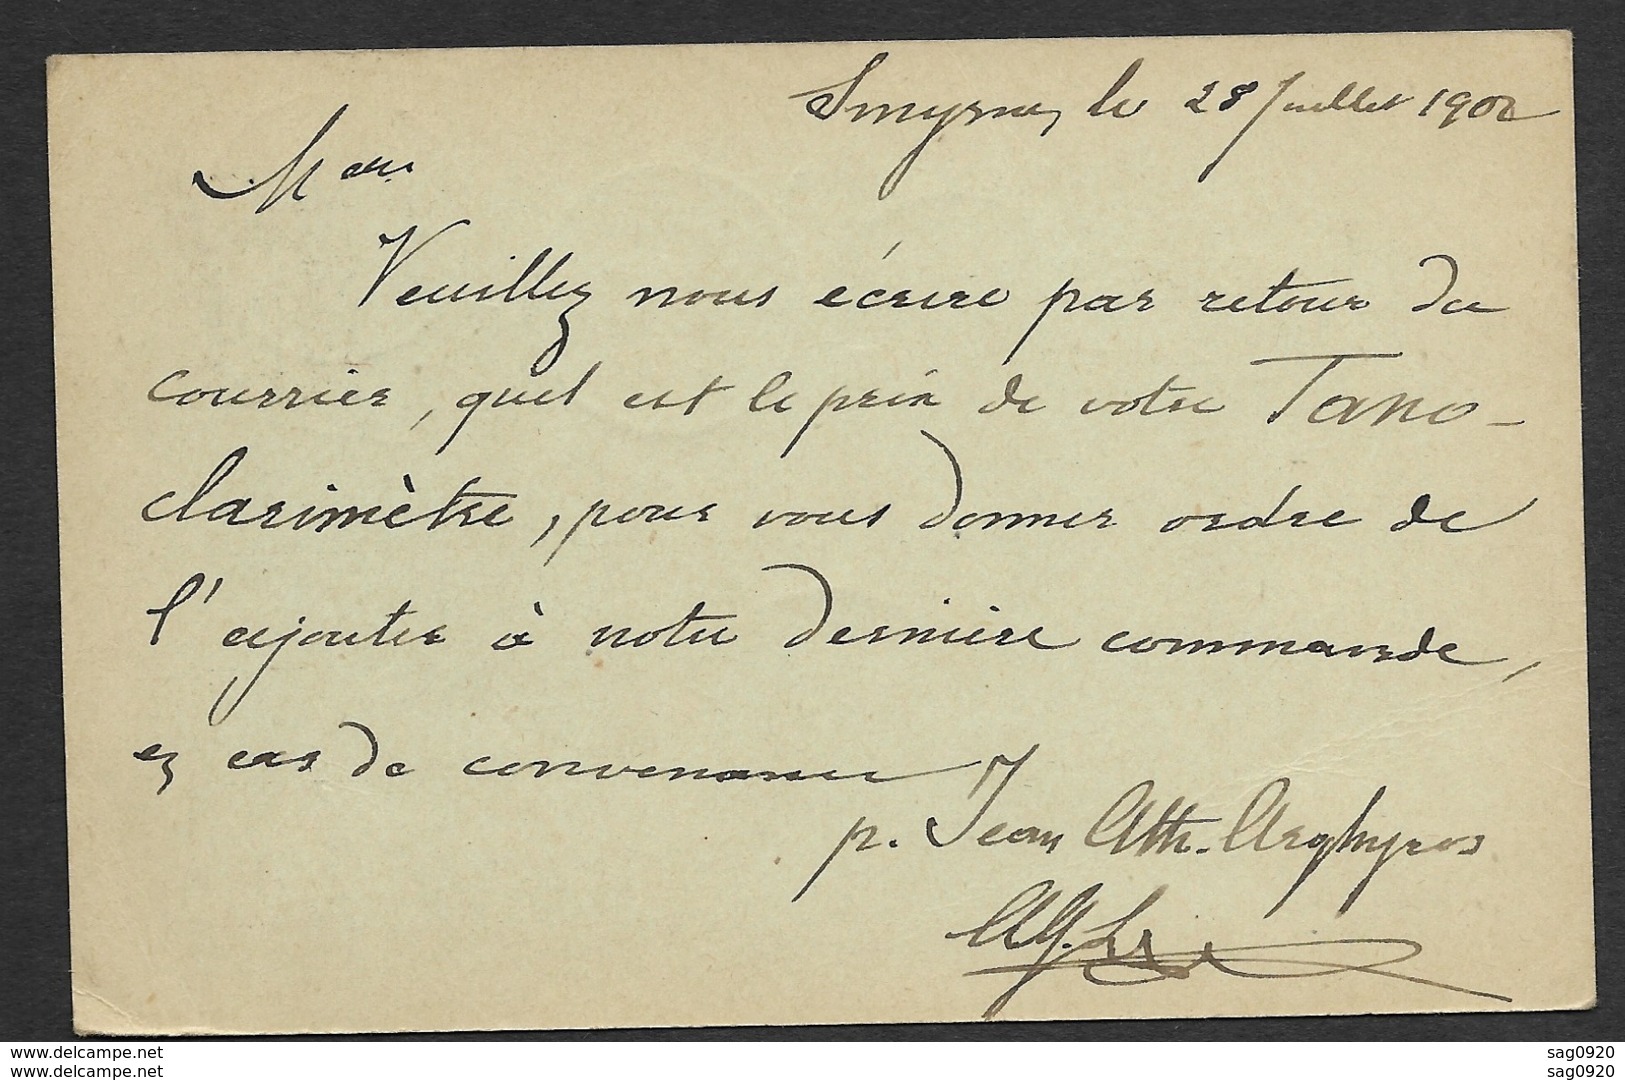 Smyrne, le 28 Juillet 1902
Mrs
Veuillez nous écrire par retour du
courrier, quel est le prix de votre Tano-
clarimètre, pour vous donner ordre de
l'ajouter à notre dernière commande,
en cas de convenance
p. Jean Ath. Arghyros
www.delcampe.net
www.delcampe.net
sag0920
sag0920